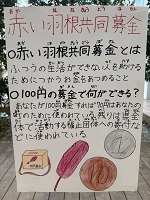 赤い羽根共同募金
○赤い羽根共同募金とは
ふつうの生活ができない人を助ける
ためにつかうお金をあつめること
○100円の募金で何ができる?
あなたが100円募金すれば70円はあなたの
町のために使われている。残りは県全
体で活やくする福止団体への寄付な
どに使われている